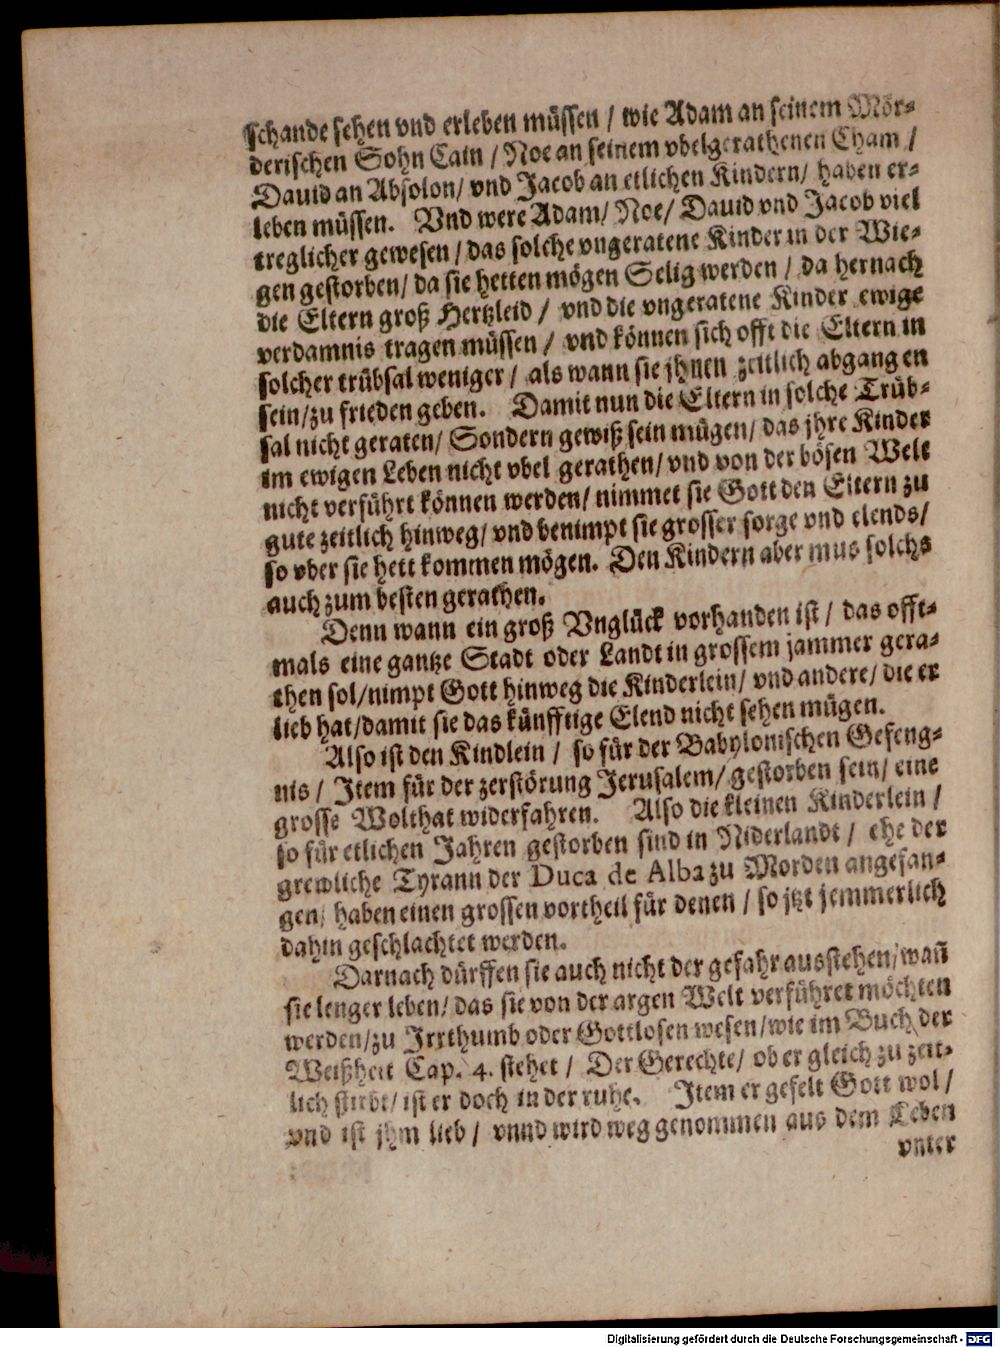 schande sehen vnd erleben müssen / wie Adam an seinem Mör-
derischen Sohn Cain / Noe an seinem vbelgerathenen Cham /
Dauid an Absolon / vnd Jacob an etlichen Kindern / haben er-
leben müssen. Vnd were Adam / Noe / Dauid vnd Jacob viel
treglicher gewesen / das solche vngeratene Kinder in der Wie-
gen gestorben / da sie hetten mögen Selig werden / da hernach
die Eltern groß Hertzleid / vnd die vngeratene Kinder ewige
verdamnis tragen müssen / vnd können sich offt die Eltern in
solcher trübsal weniger / als wann sie jhnen zeitlich abgangen
sein / zu frieden geben. Damit nun die Eltern in solche Trüb-
sal nicht geraten / Sondern gewiß sein mügen / das jhre Kinder
im ewigen Leben nicht vbel gerathen / vnd von der bösen Welt
nicht verführt können werden / nimmet sie Gott den Eltern zu
gute zeitlich hinweg / vnd benimpt sie grosser sorge vnd elends /
so vber sie hett kommen mögen. Den Kindern aber mus solchs
auch zum besten gerathen.
Denn wann ein groß Vnglück vorhanden ist / das offt-
mals eine gantze Stadt oder Landt in grossem jammer gera-
then sol / nimpt Gott hinweg die Kinderlein / vnd andere / die er
lieb hat / damit sie das künfftige Elend nicht sehen mügen.
Also ist den Kindlein / so für der Babylonischen Gefeng-
nis / Item für der zerstörung Jerusalem / gestorben sein / eine
grosse Wolthat widerfahren. Also die kleinen Kinderlein /
so für etlichen Jahren gestorben sind in Niderlandt / ehe der
grewliche Tyrann der Duca de Alba zu Morden angefan-
gen / haben einen grossen vortheil für denen / so jtzt jemmerlich
dahin geschlachtet werden.
Darnach dürffen sie auch nicht der gefahr ausstehen / wañ
sie lenger leben / das sie von der argen Welt verführet möchten
werden / zu Irrthumb oder Gottlosen wesen / wie im Buch der
Weißheit Cap. 4. stehet / Der Gerechte / ob er gleich zu zeit-
lich stirbt / ist er doch in der ruhe. Item er gefelt Gott wol /
vnd ist jhm lieb / vnnd wird weg genommen aus dem Leben
vnter
Digitalisierung gefördert durch die Deutsche Forschungsgemeinschaft - DFG